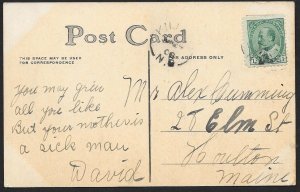 Post Card
THIS SPACE MAY BE USED
FOR CORRESPONDENCE
ADDRESS ONLY
N.B
You may grin
all you like
But your mother is
a sick man
David
Mr Alex Cumming
25 Elm St
Houlton
Maine